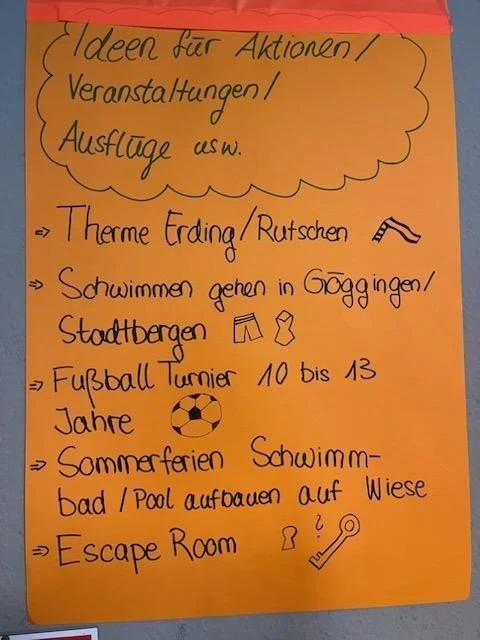 Ideen für Aktionen/
Veranstaltungen/
Ausflüge usw.
⇒ Therme Erding/Rutschen
⇒ Schwimmen gehen in Göggingen/
Stadtbergen
⇒ Fußball Turnier 10 bis 13
Jahre
⇒ Sommerferien Schwimm-
bad / Pool aufbauen auf Wiese
⇒ Escape Room ?